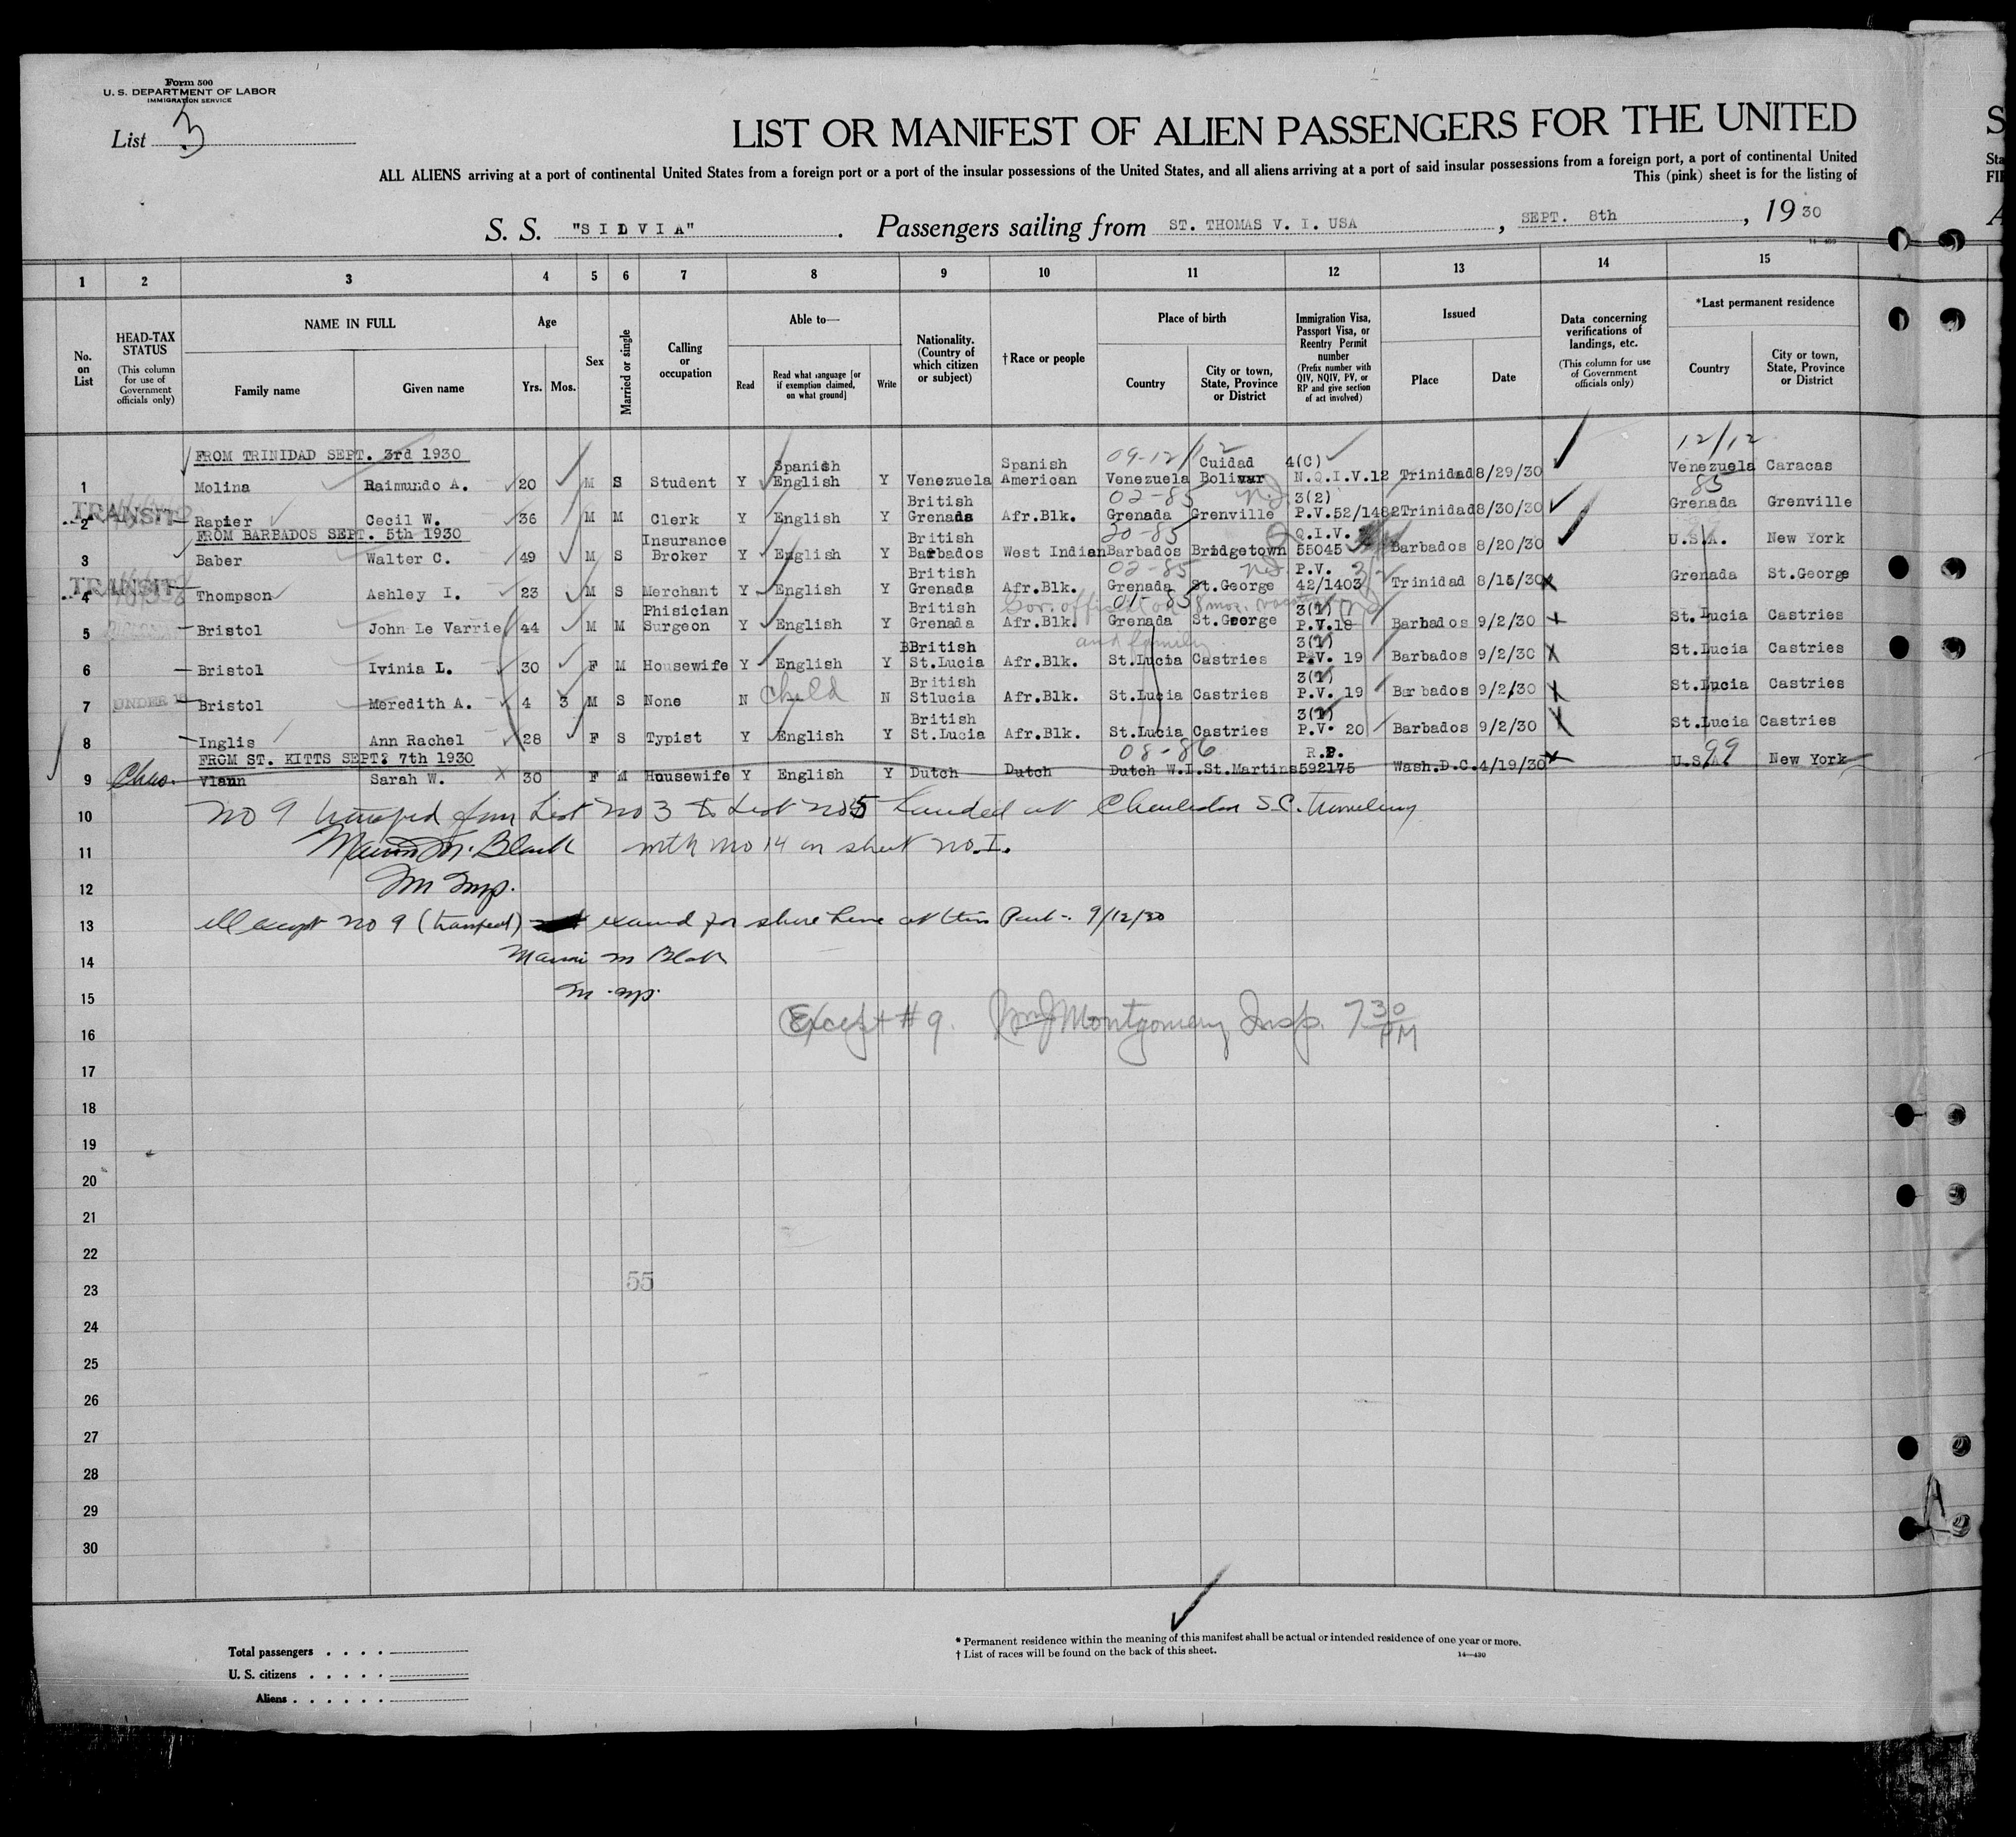 Form 500
U. S. DEPARTMENT OF LABOR
IMMIGRATION SERVICE
List 3
LIST OR MANIFEST OF ALIEN PASSENGERS FOR THE UNITED
ALL ALIENS arriving at a port of continental United States from a foreign port or a port of the insular possessions of the United States, and all aliens arriving at a port of said insular possessions from a foreign port, a port of continental United
This (pink) sheet is for the listing of
S. S. "SILVIA". Passengers sailing from ST. THOMAS V. I. USA, SEPT. 8th, 1930
14—430
1 2 3 4 5 6 7 8 9 10 11 12 13 14 15
No. on List
HEAD-TAX STATUS (This column for use of Government officials only)
NAME IN FULL Family name Given name
Age Yrs. Mos.
Sex
Married or single
Calling or occupation
Able to— Read Read what language [or if exemption claimed, on what ground] Write
Nationality. (Country of which citizen or subject)
†Race or people
Place of birth Country City or town, State, Province or District
Immigration Visa, Passport Visa, or Reentry Permit number (Prefix number with QIV, NQIV, PV, or RP and give section of act involved)
Issued Place Date
Data concerning verifications of landings, etc. (This column for use of Government officials only)
*Last permanent residence Country City or town, State, Province or District
FROM TRINIDAD SEPT. 3rd 1930 09-12/12 12/12
1 Molina Raimundo A. 20 M S Student Y Spanish English Y Venezuela Spanish American Venezuela Cuidad Bolivar 4(C) N.Q.I.V.12 Trinidad 8/29/30 Venezuela Caracas
02-85 85
2 TRANSIT Rapier Cecil W. 36 M M Clerk Y English Y British Grenada Afr.Blk. Grenada Grenville 3(2) P.V.52/1482 Trinidad 8/30/30 Grenada Grenville
FROM BARBADOS SEPT. 5th 1930 20-85
3 Baber Walter C. 49 M S Insurance Broker Y English Y British Barbados West Indian Barbados Bridgetown Q.I.V. 55045 Barbados 8/20/30 U.S.A. New York
02-85
4 TRANSIT Thompson Ashley I. 23 M S Merchant Y English Y British Grenada Afr.Blk. Grenada St.George P.V. 42/1403 Trinidad 8/15/30 Grenada St.George
Gov. official on 8 mos. vacation 01-85
5 Bristol John Le Varrie 44 M M Phisician Surgeon Y English Y British Grenada Afr.Blk. Grenada St.George 3(1) P.V.18 Barbados 9/2/30 St.Lucia Castries
and family
6 Bristol Ivinia L. 30 F M Housewife Y English Y BBritish St.Lucia Afr.Blk. St.Lucia Castries 3(1) P.V. 19 Barbados 9/2/30 St.Lucia Castries
7 UNDER 16 Bristol Meredith A. 4 3 M S None N Child N British Stlucia Afr.Blk. St.Lucia Castries 3(1) P.V. 19 Barbados 9/2/30 St.Lucia Castries
8 Inglis Ann Rachel 28 F S Typist Y English Y British St.Lucia Afr.Blk. St.Lucia Castries 3(1) P.V. 20 Barbados 9/2/30 St.Lucia Castries
FROM ST. KITTS SEPT? 7th 1930 08-86 99
9 Chas. Vlann Sarah W. 30 F M Housewife Y English Y Dutch Dutch Dutch W.I. St.Martins R.P. 592175 Wash.D.C. 4/19/30 U.S.A. New York
10 No 9 transfed from List No 3 to List No 5 Landed at Charleston S.C. traveling
11 M. Black with No 14 on sheet No. I.
12 Insp.
13 all except No 9 (transfed) examd for shore leave at this Port - 9/12/30
14 M Black
15
16 Except #9. Montgomery Insp. 7 30 PM
17
18
19
20
21
22
55
23
24
25
26
27
28
29
30
Total passengers
U. S. citizens
Aliens
* Permanent residence within the meaning of this manifest shall be actual or intended residence of one year or more.
† List of races will be found on the back of this sheet.
14—430